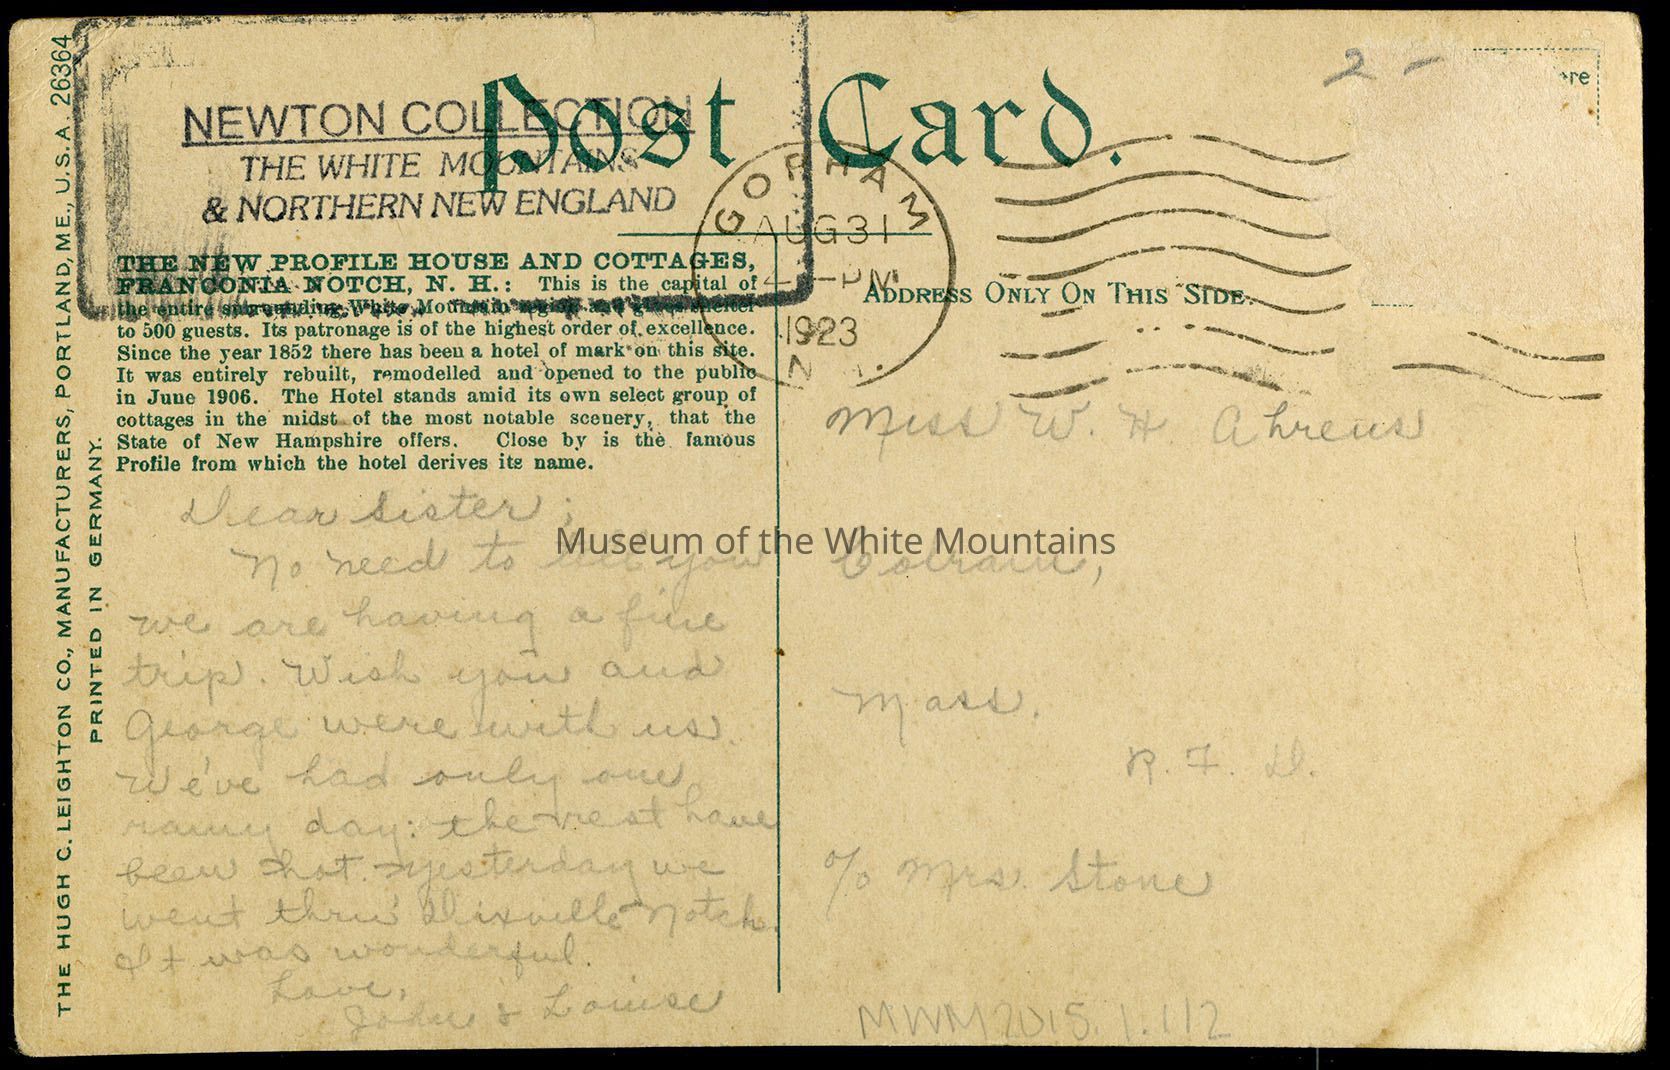 THE HUGH C. LEIGHTON CO., MANUFACTURERS, PORTLAND, ME., U.S.A. 26364
PRINTED IN GERMANY.
Post Card.
NEWTON COLLECTION
THE WHITE MOUNTAINS
& NORTHERN NEW ENGLAND
THE NEW PROFILE HOUSE AND COTTAGES,
FRANCONIA NOTCH, N. H.: This is the capital of
the entire surrounding White Mountain region and gives shelter
to 500 guests. Its patronage is of the highest order of excellence.
Since the year 1852 there has been a hotel of mark on this site.
It was entirely rebuilt, remodelled and opened to the public
in June 1906. The Hotel stands amid its own select group of
cottages in the midst of the most notable scenery, that the
State of New Hampshire offers. Close by is the famous
Profile from which the hotel derives its name.
Dear Sister;
No need to tell you
we are having a fine
trip. Wish you and
George were with us.
We've had only one
rainy day: the rest have
been hot. Yesterday we
went thru' Dixville Notch.
It was wonderful.
Love,
John & Louise
GORHAM
AUG 31
4-PM
1923
N.H.
2-
ere
ADDRESS ONLY ON THIS SIDE.
Miss W. H Ahrens
Colrain,
Mass.
R. F. D.
c/o Mrs. Stone
MWM2015.1.112
Museum of the White Mountains